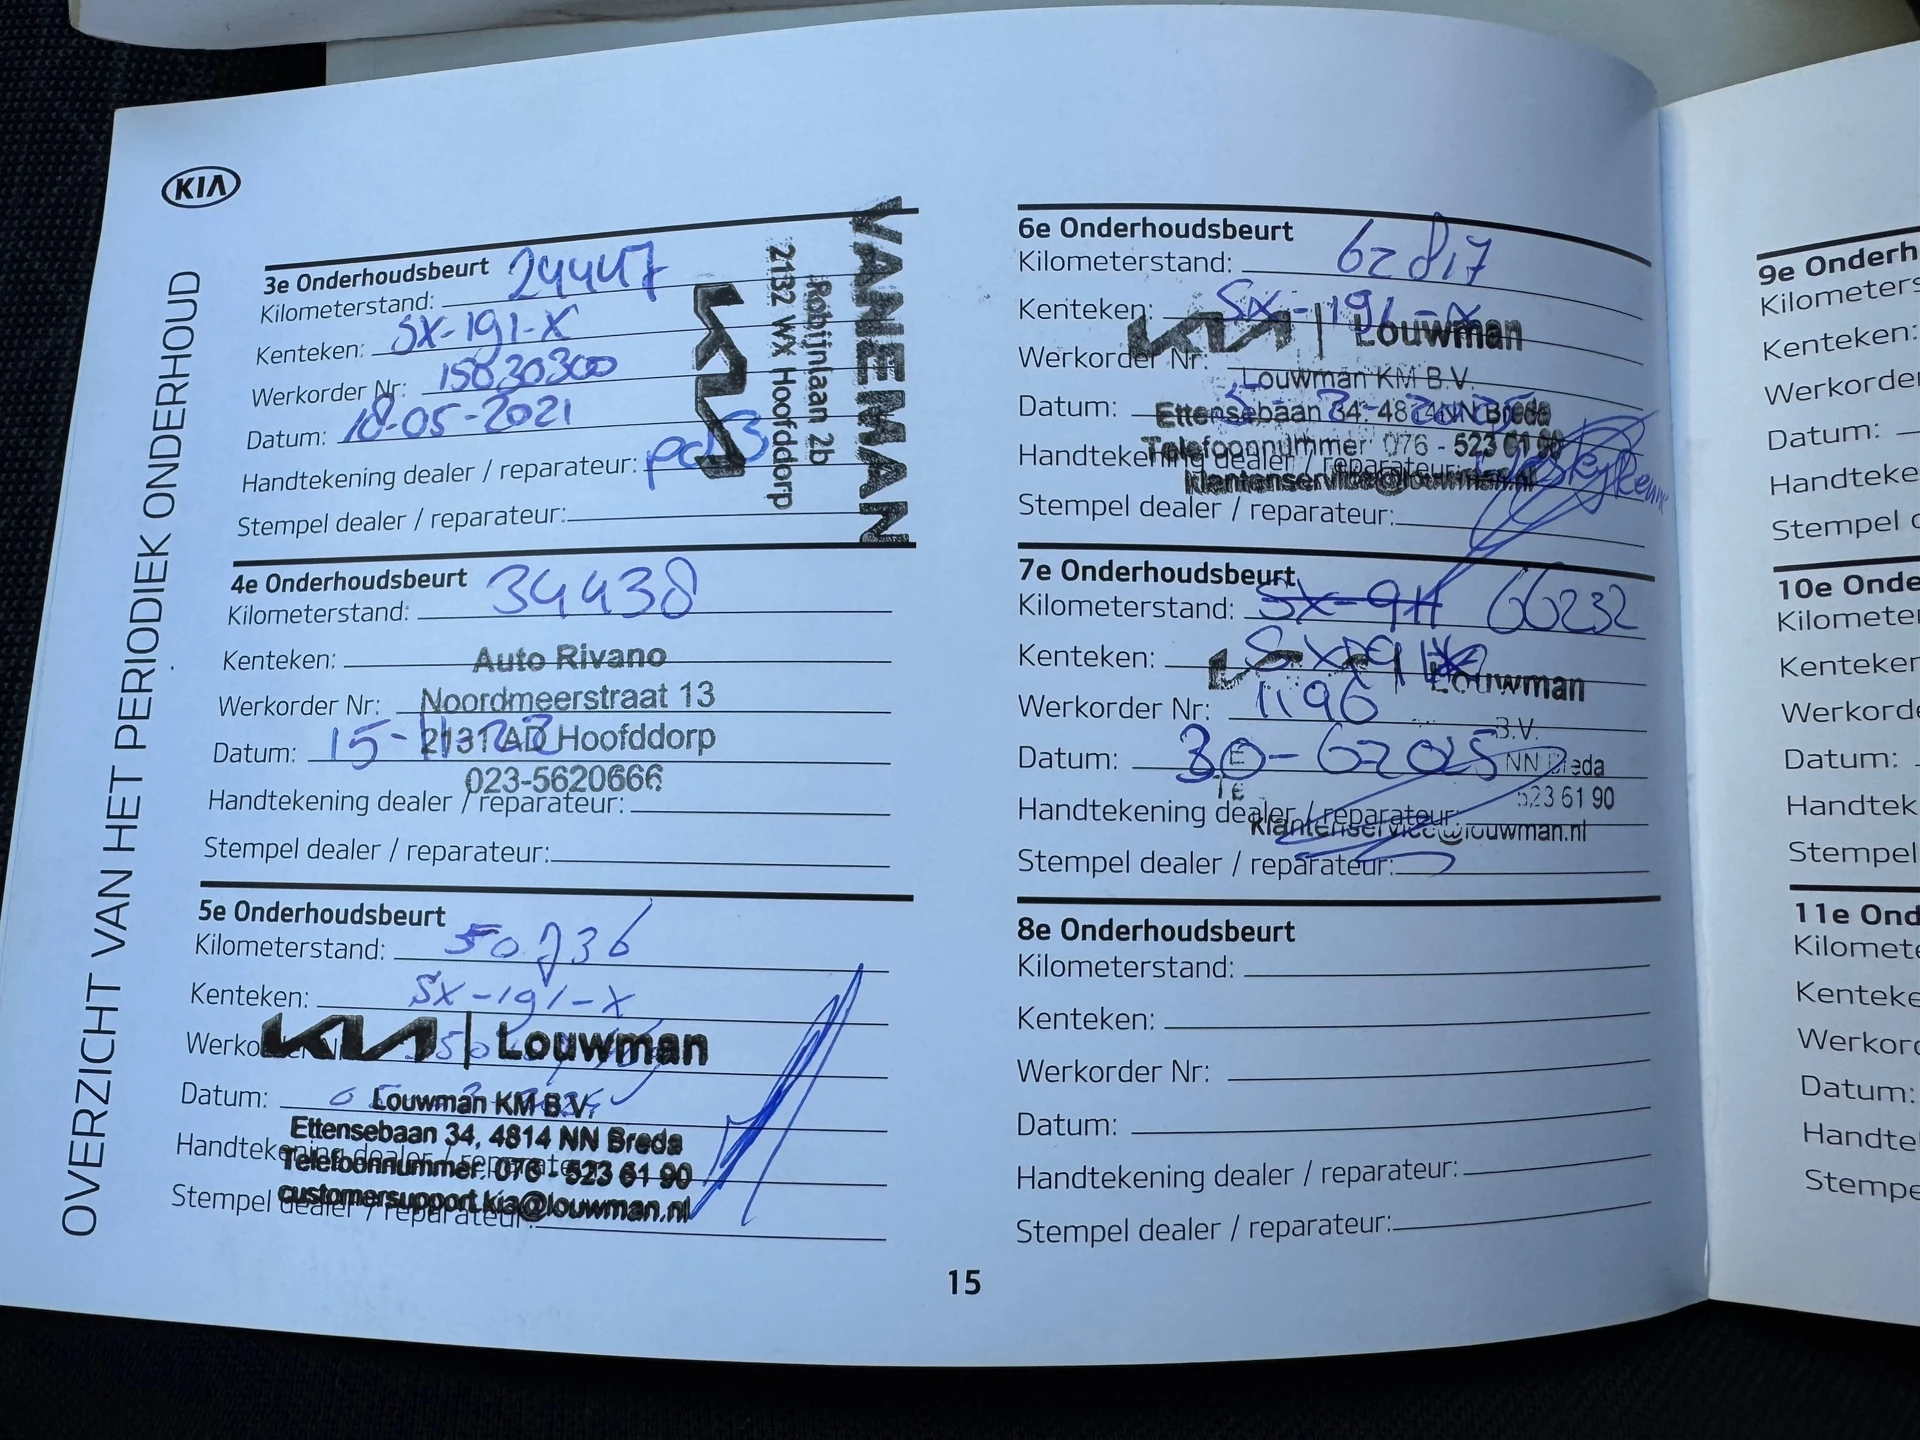 KIA
OVERZICHT VAN HET PERIODIEK ONDERHOUD
3e Onderhoudsbeurt
Kilometerstand: 24447
Kenteken: SX-191-X
Werkorder Nr: 15830300
Datum: 18-05-2021
Handtekening dealer / reparateur:
Stempel dealer / reparateur:
VANEMAN
Robijnlaan 2b
2132 WX Hoofddorp
KIA
4e Onderhoudsbeurt
Kilometerstand: 34438
Kenteken:
Auto Rivano
Werkorder Nr:
Noordmeerstraat 13
Datum: 15-11-22
2131 AD Hoofddorp
023-5620666
Handtekening dealer / reparateur:
Stempel dealer / reparateur:
5e Onderhoudsbeurt
Kilometerstand: 50736
Kenteken: SX-191-X
Werkorder Nr:
KIA | Louwman
Datum:
Louwman KM B.V.
Ettensebaan 34, 4814 NN Breda
Handtekening dealer / reparateur:
Telefoonnummer: 076 - 523 61 90
Stempel dealer / reparateur:
customersupport.kia@louwman.nl
6e Onderhoudsbeurt
Kilometerstand: 62817
Kenteken: SX-191-X
KIA | Louwman
Werkorder Nr:
Louwman KM B.V.
Datum:
Ettensebaan 34 4814 NN Breda
Telefoonnummer 076 - 523 61 90
Handtekening dealer / reparateur:
klantenservice@louwman.nl
Stempel dealer / reparateur:
7e Onderhoudsbeurt
Kilometerstand: SX-91 66232
Kenteken:
KIA | Louwman
Werkorder Nr: 1196
B.V.
Datum: 30-6 2025
NN Breda
523 61 90
Handtekening dealer / reparateur:
klantenservice@louwman.nl
Stempel dealer / reparateur:
8e Onderhoudsbeurt
Kilometerstand:
Kenteken:
Werkorder Nr:
Datum:
Handtekening dealer / reparateur:
Stempel dealer / reparateur:
15
9e Onderh
Kilometers
Kenteken:
Werkorder
Datum:
Handteke
Stempel d
10e Onde
Kilometer
Kenteken
Werkorde
Datum:
Handtek
Stempel
11e Ond
Kilomete
Kenteke
Werkord
Datum:
Handte
Stempe